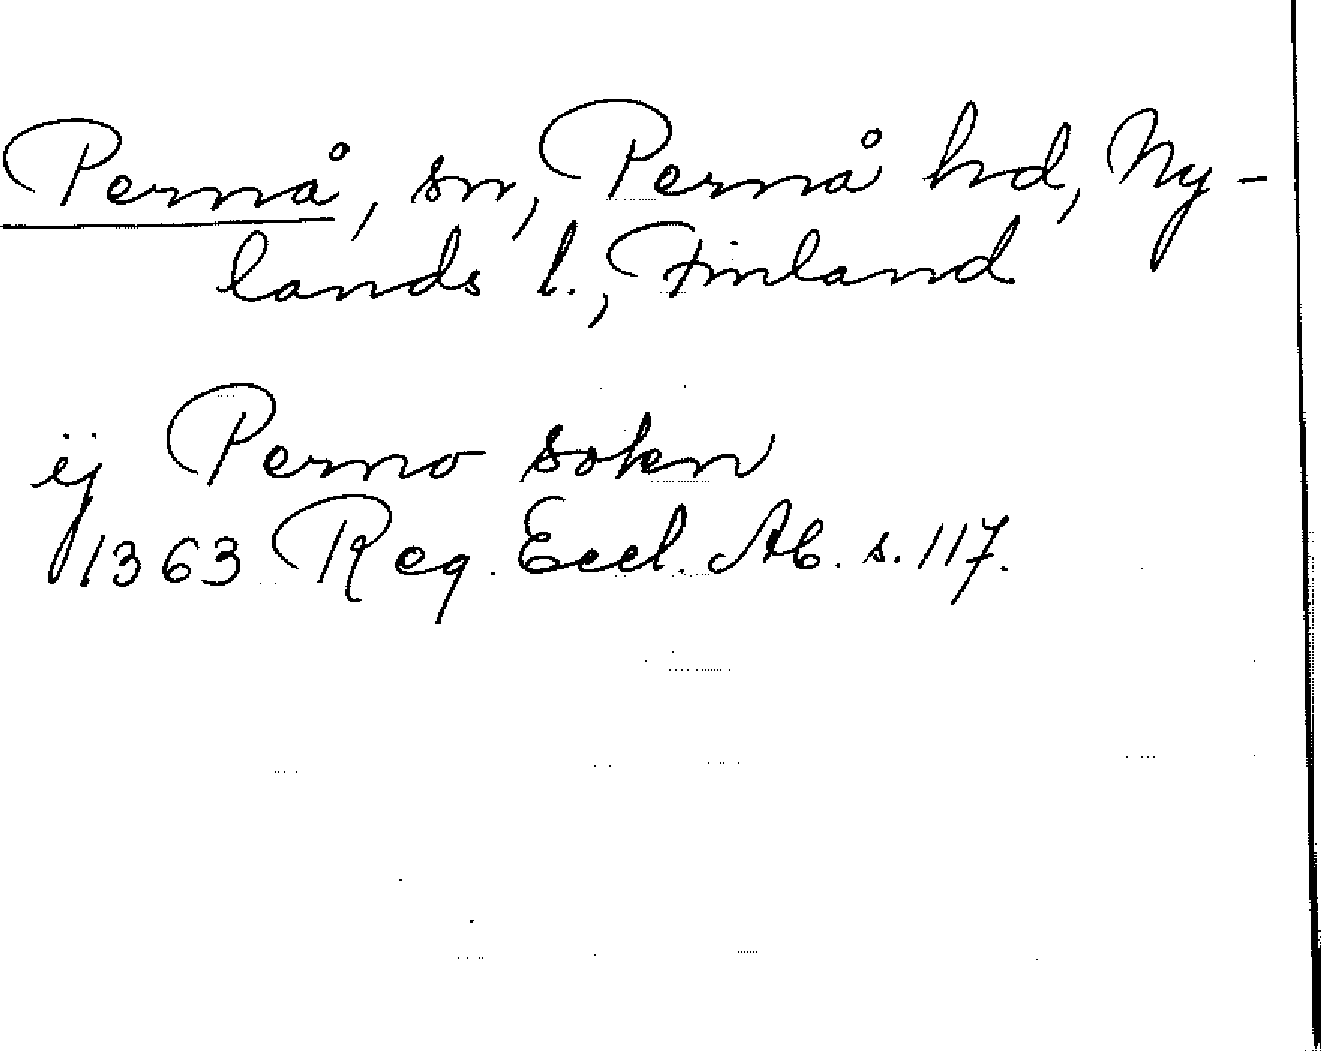 Pernå, sn, Pernå hd, Ny-
lands l., Finland
ij Perno sokn
1363 Reg. Eccl. Ab. s. 117.